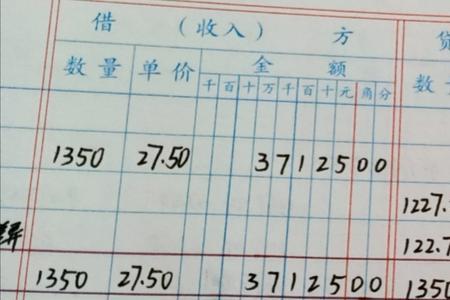 借 (收入) 方 贷
数量 单价 金额 数
千 百 十 万 千 百 十 元 角 分
1350 27.50 3 7 1 2 5 0 0
1227.
异 122.7
1350 27.50 3 7 1 2 5 0 0 1350